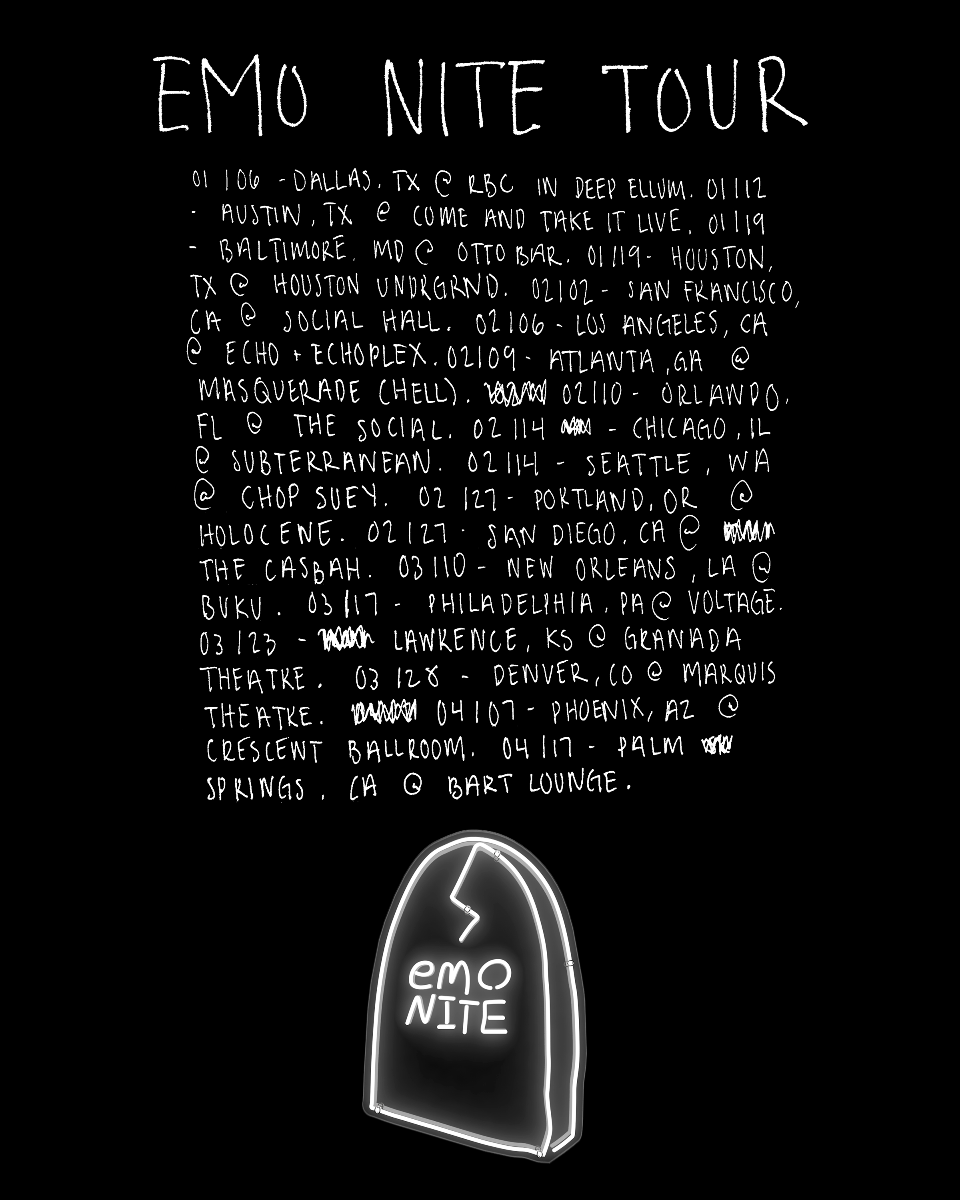 EMO NITE TOUR
01/06 - DALLAS, TX @ RBC IN DEEP ELLUM. 01/12
- AUSTIN, TX @ COME AND TAKE IT LIVE. 01/19
- BALTIMORE, MD @ OTTO BAR. 01/19 - HOUSTON,
TX @ HOUSTON UNDRGRND. 02/02 - SAN FRANCISCO,
CA @ SOCIAL HALL. 02/06 - LOS ANGELES, CA
@ ECHO + ECHOPLEX. 02/09 - ATLANTA, GA @
MASQUERADE (HELL). 02/10 - ORLANDO,
FL @ THE SOCIAL. 02/14 - CHICAGO, IL
@ SUBTERRANEAN. 02/14 - SEATTLE, WA
@ CHOP SUEY. 02/27 - PORTLAND, OR @
HOLOCENE. 02/27 - SAN DIEGO, CA @
THE CASBAH. 03/10 - NEW ORLEANS, LA @
BUKU. 03/17 - PHILADELPHIA, PA @ VOLTAGE.
03/23 - LAWRENCE, KS @ GRANADA
THEATRE. 03/28 - DENVER, CO @ MARQUIS
THEATRE. 04/07 - PHOENIX, AZ @
CRESCENT BALLROOM. 04/17 - PALM
SPRINGS, CA @ BART LOUNGE.
emo
NITE